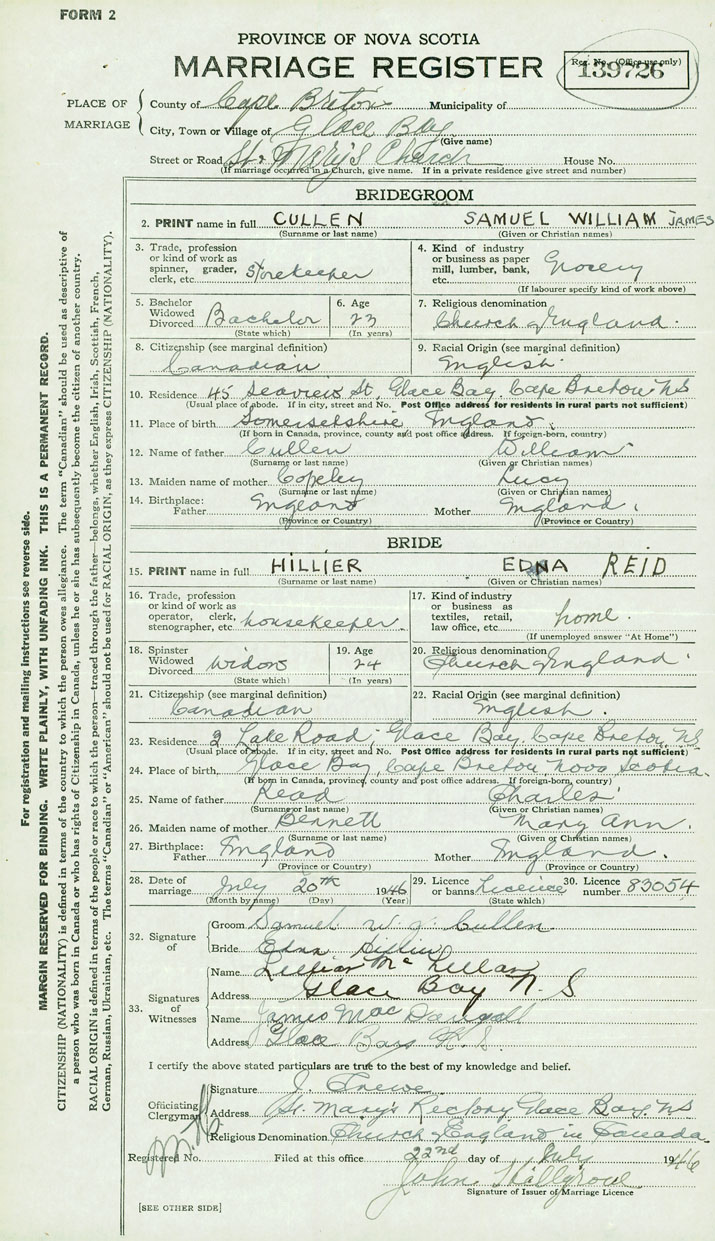 FORM 2
PROVINCE OF NOVA SCOTIA
MARRIAGE REGISTER
Reg. No. (Office use only)
139726
PLACE OF MARRIAGE
County of Cape Breton Municipality of
City, Town or Village of Glace Bay
(Give name)
Street or Road St. Mary's Church House No.
(If marriage occurred in a Church, give name. If in a private residence give street and number)
BRIDEGROOM
2. PRINT name in full CULLEN SAMUEL WILLIAM JAMES
(Surname or last name) (Given or Christian names)
3. Trade, profession or kind of work as spinner, grader, clerk, etc. Storekeeper
4. Kind of industry or business as paper mill, lumber, bank, etc. Grocery
(If labourer specify kind of work above)
5. Bachelor Widowed Divorced Bachelor
(State which)
6. Age 23
(In years)
7. Religious denomination
Church of England.
8. Citizenship (see marginal definition)
Canadian
9. Racial Origin (see marginal definition)
English.
10. Residence 45 Seaview St, Glace Bay, Cape Breton NS
(Usual place of abode. If in city, street and No. Post Office address for residents in rural parts not sufficient)
11. Place of birth Somersetshire England.
(If born in Canada, province, county and post office address. If foreign-born, country)
12. Name of father Cullen William
(Surname or last name) (Given or Christian names)
13. Maiden name of mother Copeley Lucy
(Surname or last name) (Given or Christian names)
14. Birthplace: Father England Mother England.
(Province or Country) (Province or Country)
BRIDE
15. PRINT name in full HILLIER EDNA REID
(Surname or last name) (Given or Christian names)
16. Trade, profession or kind of work as operator, clerk, stenographer, etc. housekeeper
17. Kind of industry or business as textiles, retail, law office, etc. home.
(If unemployed answer "At Home")
18. Spinster Widowed Divorced Widow
(State which)
19. Age 24
(In years)
20. Religious denomination
Church of England
21. Citizenship (see marginal definition)
Canadian
22. Racial Origin (see marginal definition)
English.
23. Residence 2 Lake Road, Glace Bay, Cape Breton, NS
(Usual place of abode. If in city, street and No. Post Office address for residents in rural parts not sufficient)
24. Place of birth Glace Bay, Cape Breton Nova Scotia.
(If born in Canada, province, county and post office address. If foreign-born, country)
25. Name of father Read Charles
(Surname or last name) (Given or Christian names)
26. Maiden name of mother Bennett Mary Ann.
(Surname or last name) (Given or Christian names)
27. Birthplace: Father England Mother England.
(Province or Country) (Province or Country)
28. Date of marriage July 20th 1946
(Month by name) (Day) (Year)
29. Licence or banns Licence
(State which)
30. Licence number 83054
32. Signature of
Groom Samuel W J Cullen
Bride Edna Hillier
33. Signatures of Witnesses
Name Lillian McLellan
Address Glace Bay N. S
Name James MacDougall
Address Glace Bay N. S.
I certify the above stated particulars are true to the best of my knowledge and belief.
Officiating Clergyman
Signature J. Crewe
Address St. Mary's Rectory Glace Bay. NS
Religious Denomination Church of England in Canada.
Registered No. Filed at this office 22nd day of July 1946
John
Signature of Issuer of Marriage Licence
[SEE OTHER SIDE]
For registration and mailing instructions see reverse side.
MARGIN RESERVED FOR BINDING. WRITE PLAINLY, WITH UNFADING INK. THIS IS A PERMANENT RECORD.
CITIZENSHIP (NATIONALITY) is defined in terms of the country to which the person owes allegiance. The term "Canadian" should be used as descriptive of
a person who was born in Canada or who has rights of Citizenship in Canada, unless he or she has subsequently become the citizen of another country.
RACIAL ORIGIN is defined in terms of the people or race to which the person—traced through the father—belongs, whether English, Irish, Scottish, French,
German, Russian, Ukrainian, etc. The terms "Canadian" or "American" should not be used for RACIAL ORIGIN, as they express CITIZENSHIP (NATIONALITY).